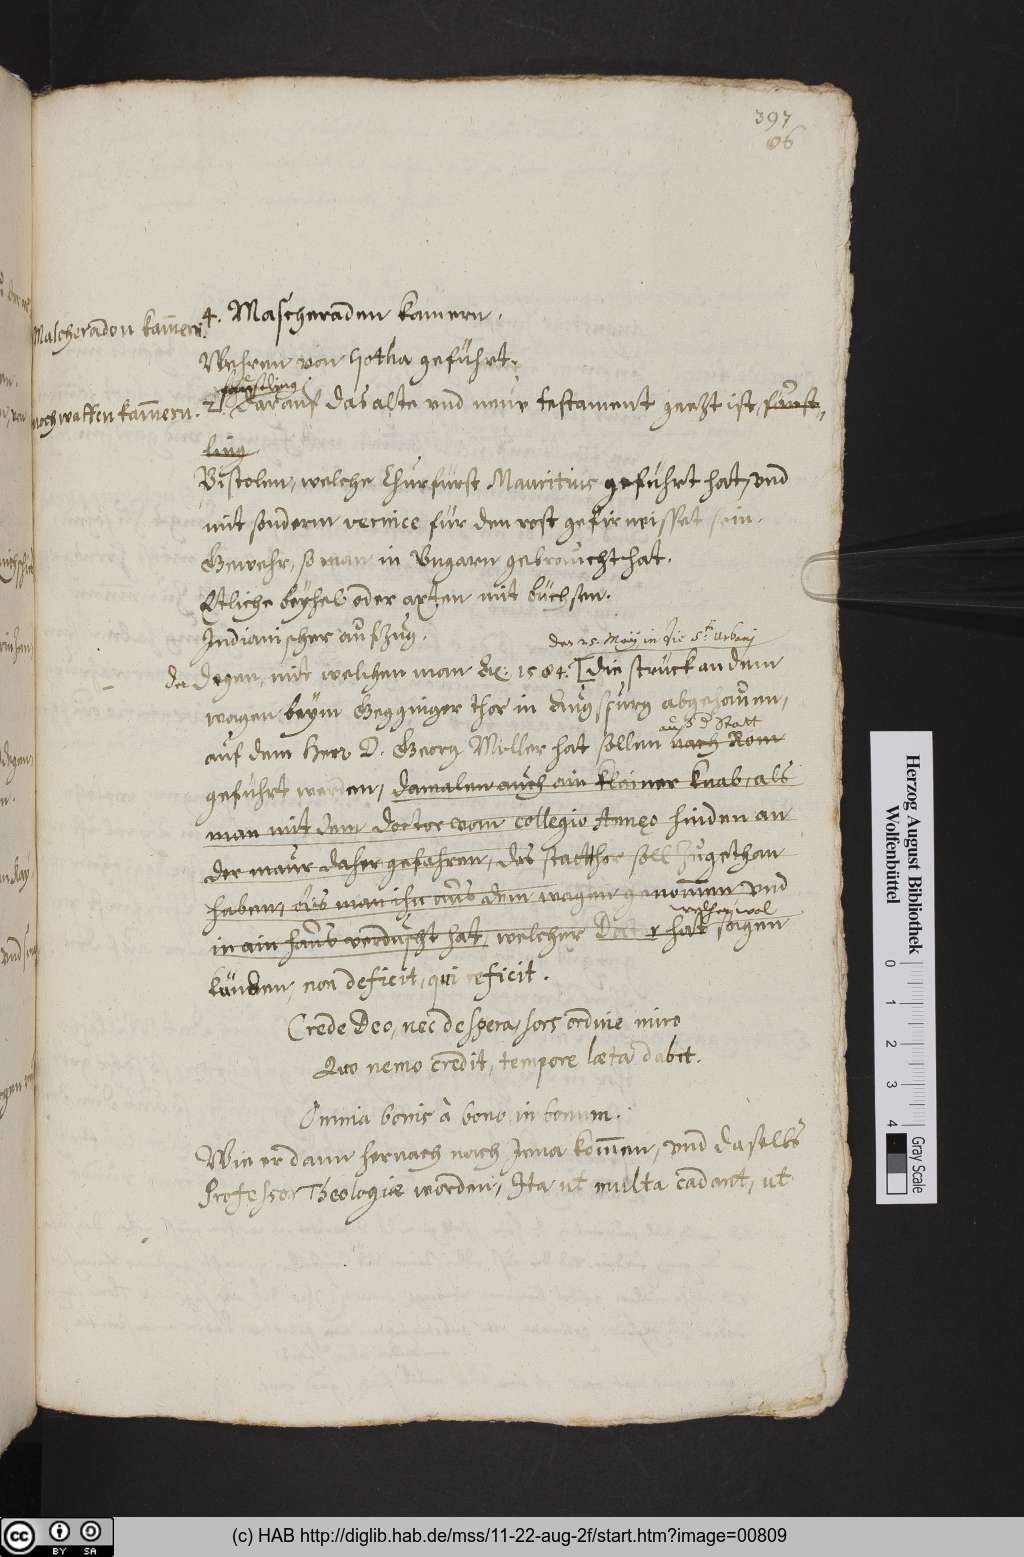 397
06
Mascheraden kam̄ern.
4. Mascheraden kamern.
Wehren von Gotha geführt.
noch waffen kam̄ern.
feüstling
2. Darauf das alte vnd neue testament geezt ist, feüst-
ling
Bistolen, welche Churfürst Mauritius geführt hat, vnd
mit sonderm vernice für den rost gefirneisset sein.
Gewehr, so man in Vngarn gebraucht hat.
Etliche beyhel oder axten mit büchsen.
Indianischer aufzug.
den 25. Maij in die S.ti Urbani
der Degen, mit welchen man Ao: 1584. [die strück an dem
wagen beym Gegginger thor in Augspurg abgehauen,
auß d Statt
auf dem Herr D. Georg Miller hat sollen nach Rom
geführt werden, damalen auch ain kleiner knab, als
man mit dem doctor vom collegio Annæo hinden an
der maur daher gefahren, das statthor soll zugethan
haben, bis man ihn aus dem wagen genommen vnd
in ain haus verduscht hat, welcher Doctor hat wol sagen
künden, non deficit, qui reficit.
Crede Deo, nec despera, sors ordine miro
Quo nemo credit, tempore læta dabit.
Omnia bonis à bono in bonum.
Wie er dann hernach nach Jena kom̄en, vnd daselbs
Professor Theologiæ worden, Ita ut multa cadant, ut
Herzog August Bibliothek
Wolfenbüttel
0 1 2 3 4
Gray Scale
cc BY SA
(c) HAB http://diglib.hab.de/mss/11-22-aug-2f/start.htm?image=00809